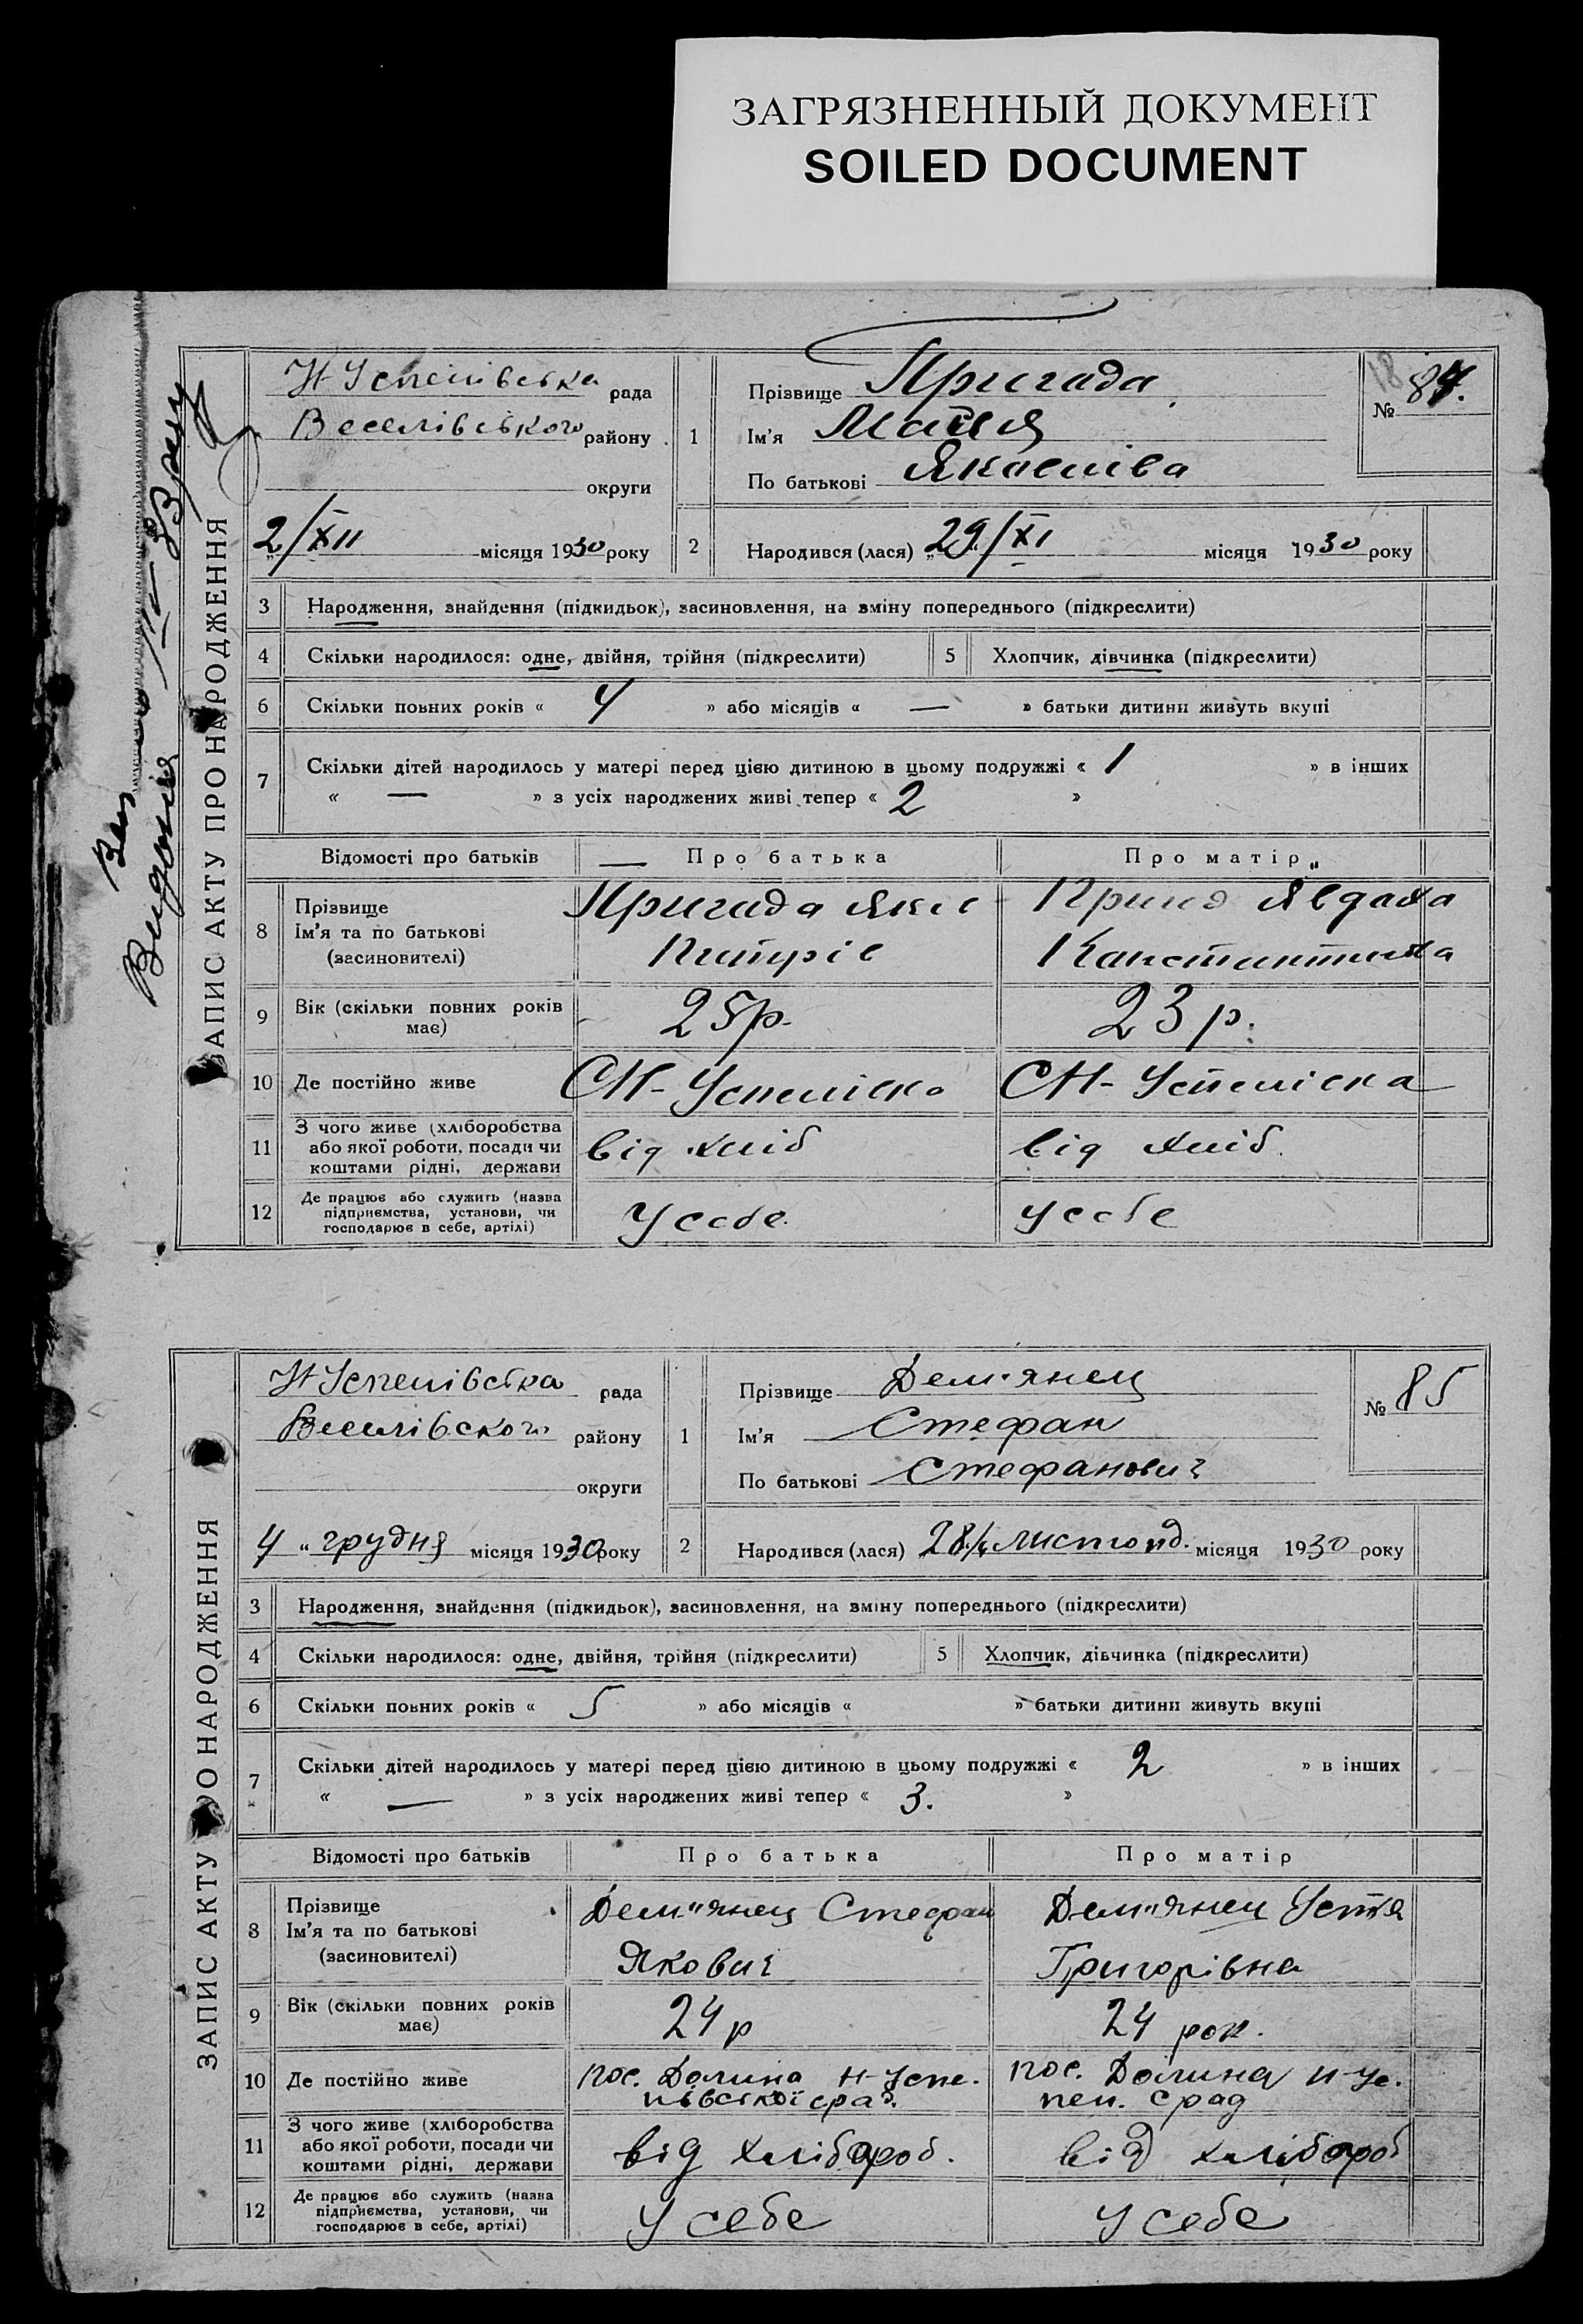 ЗАГРЯЗНЕННЫЙ ДОКУМЕНТ
SOILED DOCUMENT
ЗАПИС АКТУ ПРО НАРОДЖЕННЯ
Н Успенівська рада
Веселівського району
округи
2/XII місяця 1930 року
1 Прізвище Пригада
Ім'я
По батькові
№ 84.
2 Народився (лася) „29/XI місяця 1930 року
3 Народження, знайдення (підкидьок), засиновлення, на зміну попереднього (підкреслити)
4 Скільки народилося: одне, двійня, трійня (підкреслити) 5 Хлопчик, дівчинка (підкреслити)
6 Скільки повних років « 4 » або місяців « — » батьки дитини живуть вкупі
7 Скільки дітей народилось у матері перед цією дитиною в цьому подружжі « 1 » в інших
« — » з усіх народжених живі тепер « 2 »
Відомості про батьків — Про батька Про матір
8 Прізвище
Ім'я та по батькові
(засиновителі)
Пригада
9 Вік (скільки повних років має) 25р. 23 р.
10 Де постійно живе
11 З чого живе (хліборобства
або якої роботи, посади чи
коштами рідні, держави
від хліб від хліб.
12 Де працює або служить (назва
підприємства, установи, чи
господарює в себе, артілі)
У собе. у собе
ЗАПИС АКТУ ПРО НАРОДЖЕННЯ
Н Успенівська рада
Веселівского району
округи
4 " грудня місяця 1930 року
1 Прізвище Дем'янец
Ім'я Стефан
По батькові Стефанович
№ 85
2 Народився (лася) 28/ листопд. місяця 1930 року
3 Народження, знайдення (підкидьок), засиновлення, на зміну попереднього (підкреслити)
4 Скільки народилося: одне, двійня, трійня (підкреслити) 5 Хлопчик, дівчинка (підкреслити)
6 Скільки повних років « 5 » або місяців « » батьки дитини живуть вкупі
7 Скільки дітей народилось у матері перед цією дитиною в цьому подружжі « 2 » в інших
« — » з усіх народжених живі тепер « 3. »
Відомості про батьків Про батька Про матір
8 Прізвище
Ім'я та по батькові
(засиновителі)
Дем"янец Стефан
Якович
Дем"янец Устя
Григорівна
9 Вік (скільки повних років має) 24 р 24 рок.
10 Де постійно живе
пос. Долина Н-Успе.
нівської срад.
пос. Долина Н-Ус.
пен. срад
11 З чого живе (хліборобства
або якої роботи, посади чи
коштами рідні, держави
від хлібороб. від хлібороб
12 Де працює або служить (назва
підприємства, установи, чи
господарює в себе, артілі)
У себе У себе